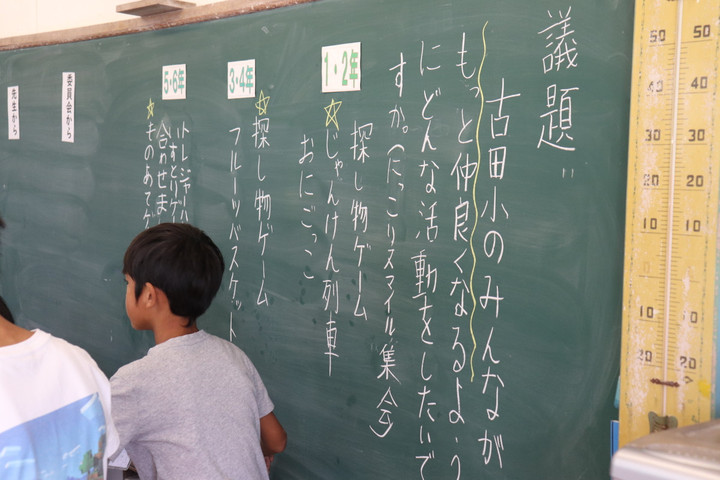 議題
古田小のみんなが
もっと仲良くなるよう
にどんな活動をしたいで
すか。(にっこりスマイル集会)
1・2年
探し物ゲーム
☆じゃんけん列車
おにごっこ
3・4年
☆探し物ゲーム
フルーツバスケット
5・6年
トレジャーハ
いすとりゲ
合わせま
☆ものあてゲ
委員会から
先生から
50 50
40 40
30 30
20 20
10 10
0 0
10 10
20 20